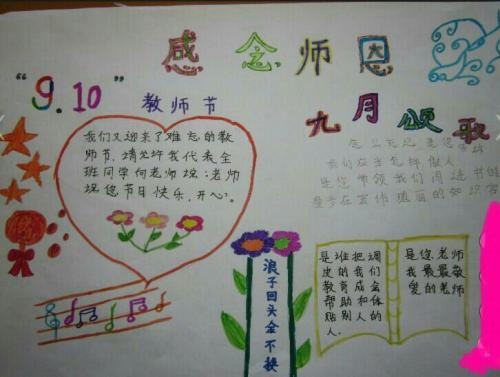 感念师恩
“9.10”
教师节
九月颂歌
我们又迎来了难忘的教
师节,请允许我代表全
班同学向老师说:老师
祝您节日快乐,开心。
我们应当怎样做人
是您带领我们阅读书的
浪子回头金不换
是谁把调
皮的我们
教育成全体的
帮助别人和
贴人.
是您老师
我最最敬
爱的老师